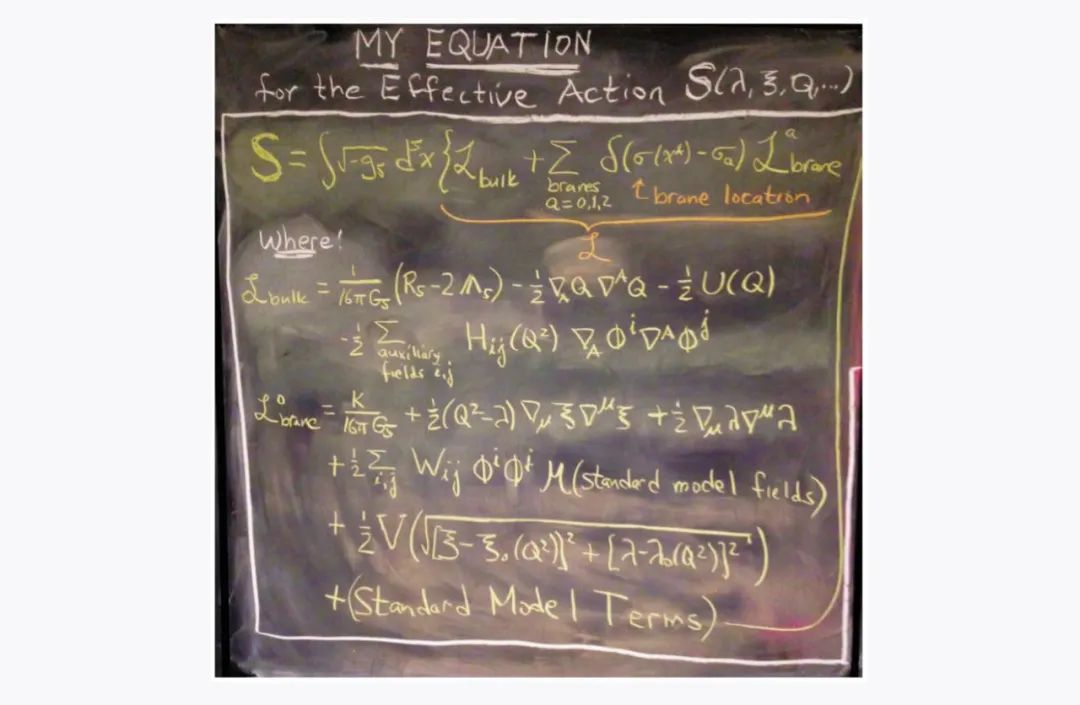 MY EQUATION
for the Effective Action S(λ, ξ, Q, ...)
S = ∫√-g₅ d⁵x { ℒ_bulk + Σ_{branes a=0,1,2} δ(σ(x^A) - σ_a) ℒ^a_brane
↑ brane location
ℒ
Where!
ℒ_bulk = 1/(16π G₅) (R₅ - 2Λ₅) - ½ ∇_A Q ∇^A Q - ½ U(Q)
- ½ Σ_{auxiliary fields i,j} H_ij(Q²) ∇_A Φ^i ∇^A Φ^j
ℒ⁰_brane = K/(16π G₅) + ½ (Q² - λ) ∇_μ ξ ∇^μ ξ + ½ ∇_μ λ ∇^μ λ
+ ½ Σ_{i,j} W_ij Φ^i Φ^j M(standard model fields)
+ ½ V(√([ξ - ξ₀(Q²)]² + [λ - λ₀(Q²)]²))
+ (Standard Model Terms)